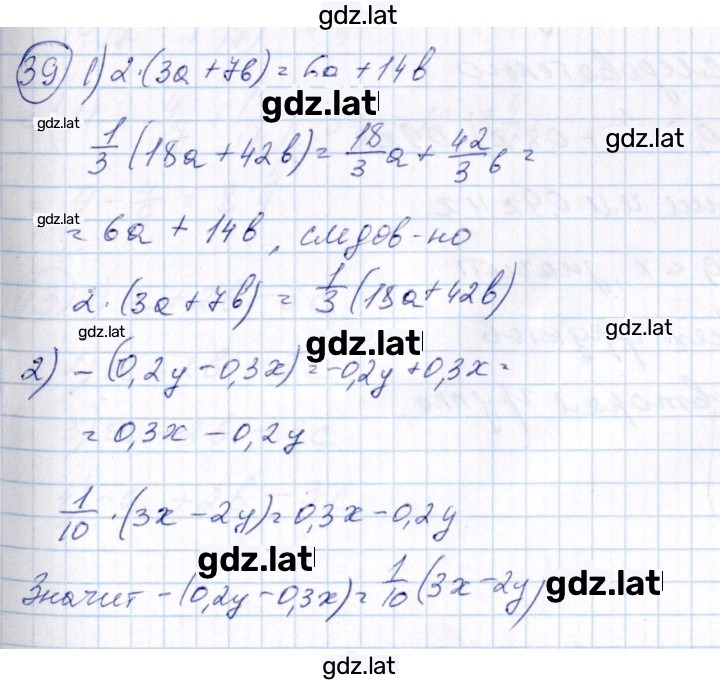 gdz.lat
39) 1) 2·(3a+7b)=6a+14b
gdz.lat
gdz.lat
gdz.lat
1/3(18a+42b)=18/3a+42/3b=
gdz.lat
=6a+14b, следов-но
2·(3a+7b)=1/3(18a+42b)
gdz.lat
gdz.lat
gdz.lat
2) -(0,2y-0,3x)=-0,2y+0,3x=
=0,3x-0,2y
1/10·(3x-2y)=0,3x-0,2y
gdz.lat
gdz.lat
Значит -(0,2y-0,3x)=1/10(3x-2y)
gdz.lat